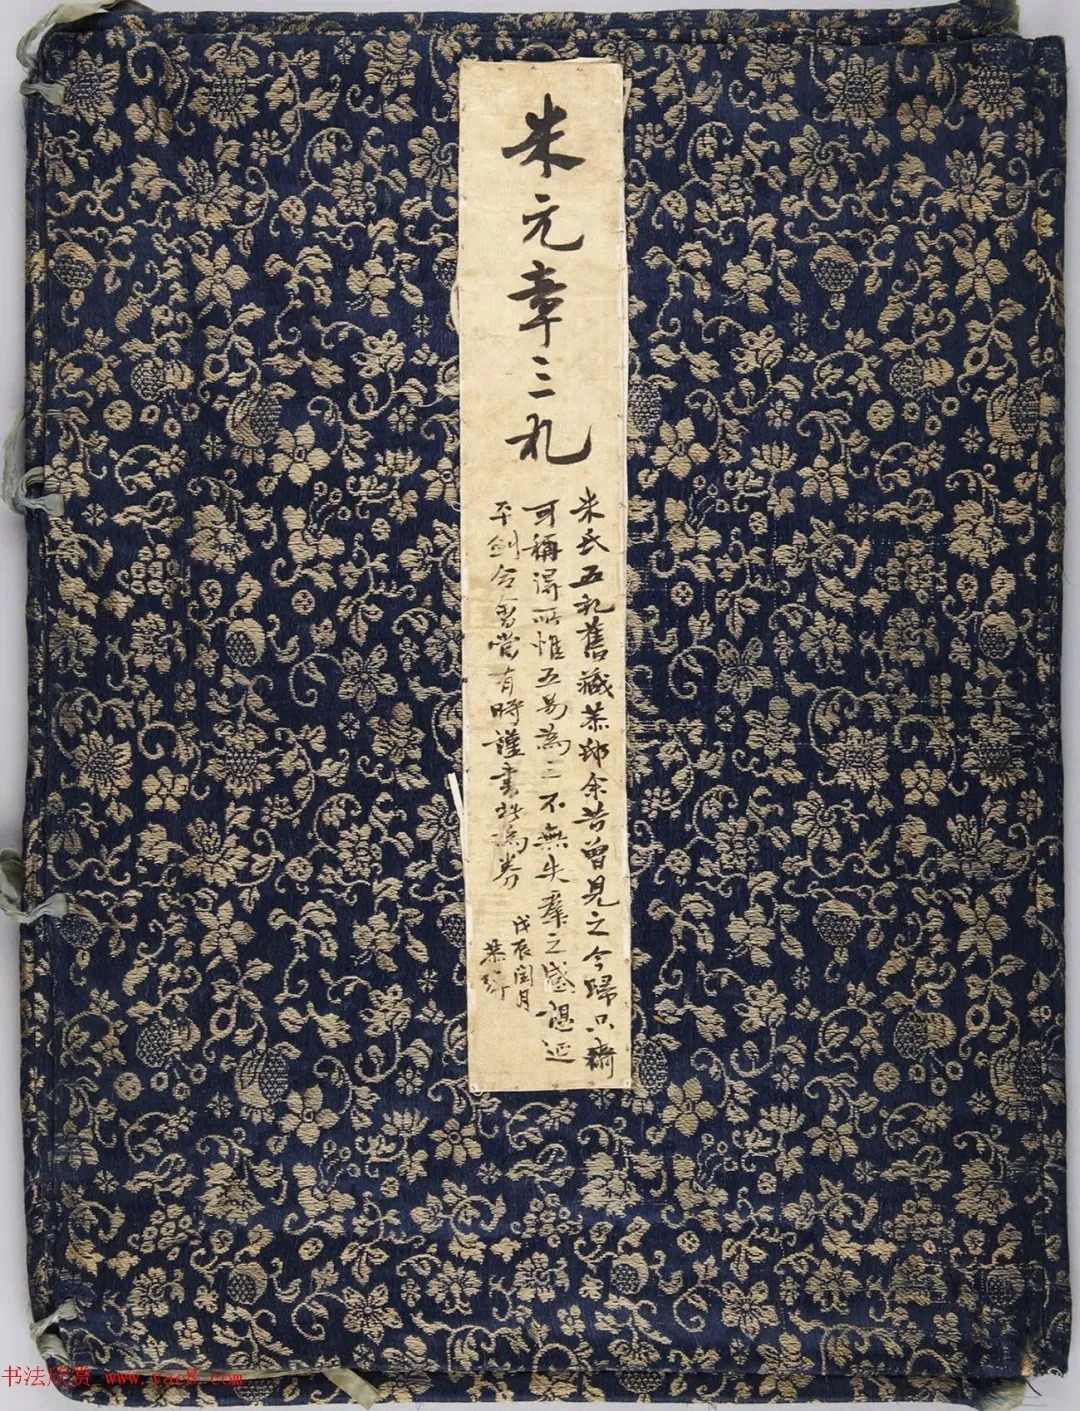 米元章三札
米氏五札舊藏恭邸余昔曾見之今歸只齋
可稱得所惟五易為三不無失群之感想延
平劍合當有時謹書此為券
戊辰閏月
葉
书法欣赏 www.yac8.com